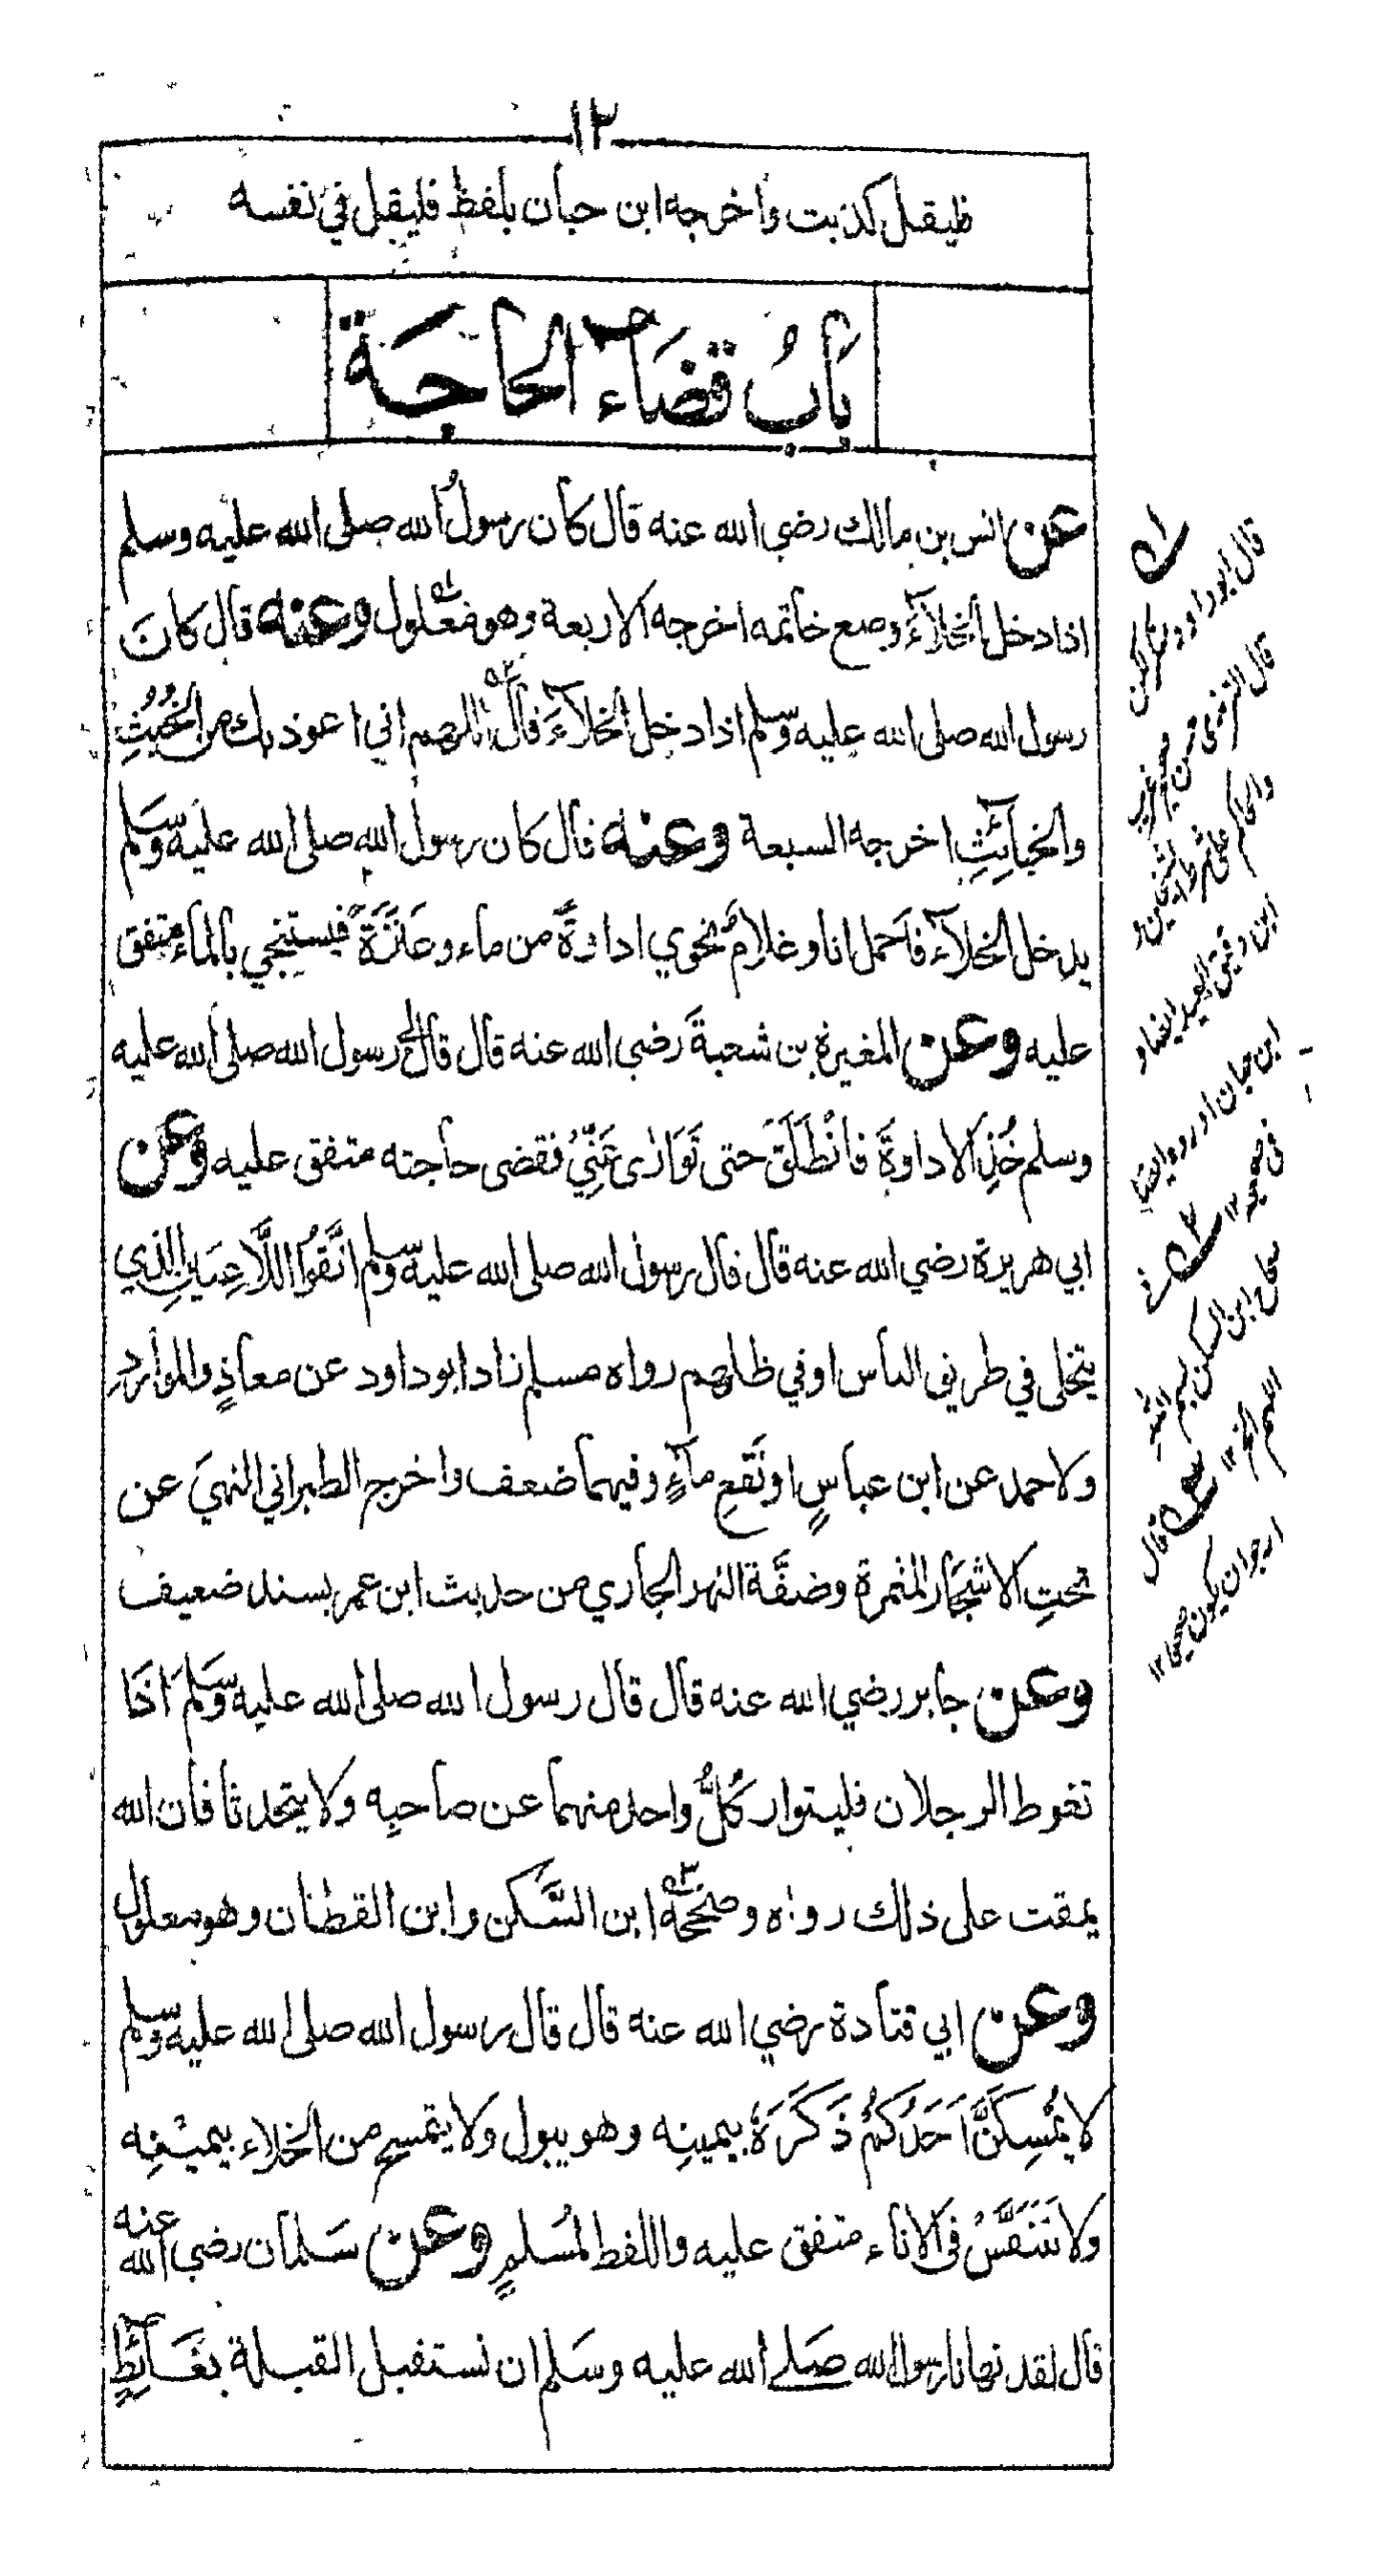 ١٢
فليقل كذبت واخرجه ابن حبان بلفظ فليقل في نفسه
بَابُ قضَآء الحاجَة
عن انس بن مالك رضي الله عنه قال كان رسولُ الله صلى الله عليه وسلم
اذا دخل الخلآءَ وضع خاتمه اخرجه الاربعة وهو معلول وعنه قال كانَ
رسول الله صلى الله عليه وسلم اذا دخل الخلآءَ قال اللهم اني اعوذ بك من الخُبُثِ
والخبآئِثِ اخرجه السبعة وعنه قال كان رسول الله صلى الله عليه وسَلم
يدخل الخلآء فاَحمل انا وغلامٌ نحوي اداوةً من ماء وعَنَزَةً فيستنجي بالماء متفق
عليه وعن المغيرة بن شعبةَ رضي الله عنه قال قال لي رسول الله صلى الله عليه
وسلم خُذِ الاداوةَ فانْطَلَقَ حتى تَوَارٰى عَنِّيْ فقضى حاجته متفق عليه وعن
ابي هريرة رضي الله عنه قال قال رسول الله صلى الله عليه وسلم اتَّقُوا اللَّاعِنَينِ الذي
يتخلى في طريق الناس او في ظلهم رواه مسلم زاد ابو داود عن معاذٍ والمواردِ
ولاحمد عن ابن عباسٍ او نَقعِ مآءٍ وفيهما ضعف واخرج الطبراني النهيَ عن
تحتِ الاشجار المثمرة وضفَّة النهر الجاري من حديث ابن عمر بسند ضعيف
وعن جابر رضي الله عنه قال قال رسول الله صلى الله عليه وسَلمَ اذَا
تغوط الرجلان فليتوار كُلُّ واحد منهما عن صاحبِه ولا يتحدثا فان الله
يمقت على ذلك رواه وصححه ابن السَّكن وابن القطان وهو معلول
وعن ابي قتادة رضي الله عنه قال قال رسول الله صلى الله عليه وسلم
لا يُمْسِكَنَّ اَحَدُكُمْ ذَكَرَهٗ بيمينِه وهو يبول ولا يتمسح من الخلاء بيمينِه
ولا يَتَنَفَّسْ في الاناء متفق عليه واللفظ لمُسلمٍ وعن سَلمان رضي الله عنه
قال لقد نهانا رسول الله صَلى الله عليه وسَلم ان نستقبل القبلة بغَآئطٍ
قال ابوداود منكر
قال الترمذي حسن صحيح غريب
والحاكم على شرط الشيخين و
ابن دقيق العيد ايضا و
ابن حبان اوردوا ايضا
في صحيحه ١٢
صحاح ابن السكن بسم الله
اللهم الخ ١٢
قال
ارجو ان يكون صحيحا ١٢